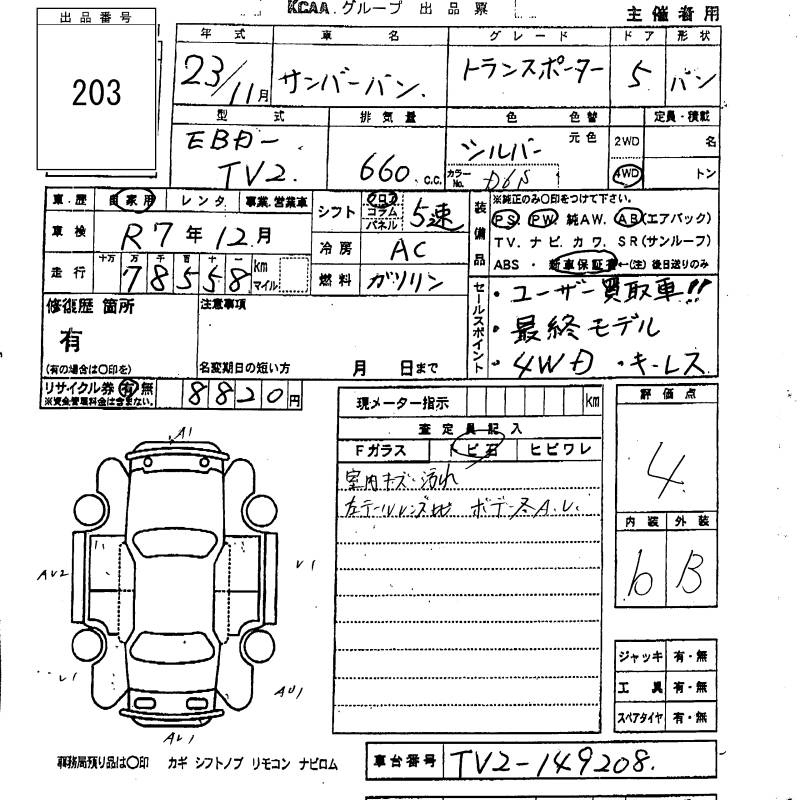 KCAA グループ 出品票
主催者用
出品番号
203
年式 車名 グレード ドア 形状
23/11月 サンバーバン. トランスポーター 5 バン
型式 排気量 色 色替 定員・積載
EBD- TV2. 660 c.c. シルバー 元色 2WD 名
カラーNo. D6S 4WD トン
車・歴 自家用 レンタ 事業.営業車
車検 R7年12月
走行 十万 万 千 百 十 一
78558 km マイル
シフト フロア コラム パネル 5速
冷房 AC
燃料 ガソリン
装備品
※純正のみ〇印をつけて下さい。
PS PW. 純AW. AB(エアバック)
TV. ナビ. カワ. SR(サンルーフ)
ABS・新車保証書←(注)後日送りのみ
修復歴 箇所
有
(有の場合は〇印を)
注意事項
名変期日の短い方 月 日まで
セールスポイント
・ユーザー買取車!!
・最終モデル
・4WD ・キーレス
リサイクル券 有 無 8820円
※資金管理料金は含まない。
現メーター指示 km
査定員記入
Fガラス トビ石 ヒビワレ
室内キズ・汚れ
左テールレンズ ボデー A.U.
評価点
4
内装 外装
b B
A1
AU2
U1
U1
AU1
AU1
ジャッキ 有・無
工具 有・無
スペアタイヤ 有・無
事務局預り品は〇印 カギ シフトノブ リモコン ナビロム
車台番号 TV2-149208.